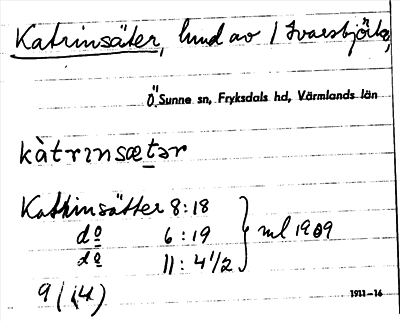 Katrinsäter, lund av 1 Ivarsbjörke,
Ö. Sunne sn, Fryksdals hd, Värmlands län
kàtrınsætər
Kathrinsätter 8:18
do 6:19 ml 1909
do 11:4 1/2
9/(14)
1911-16